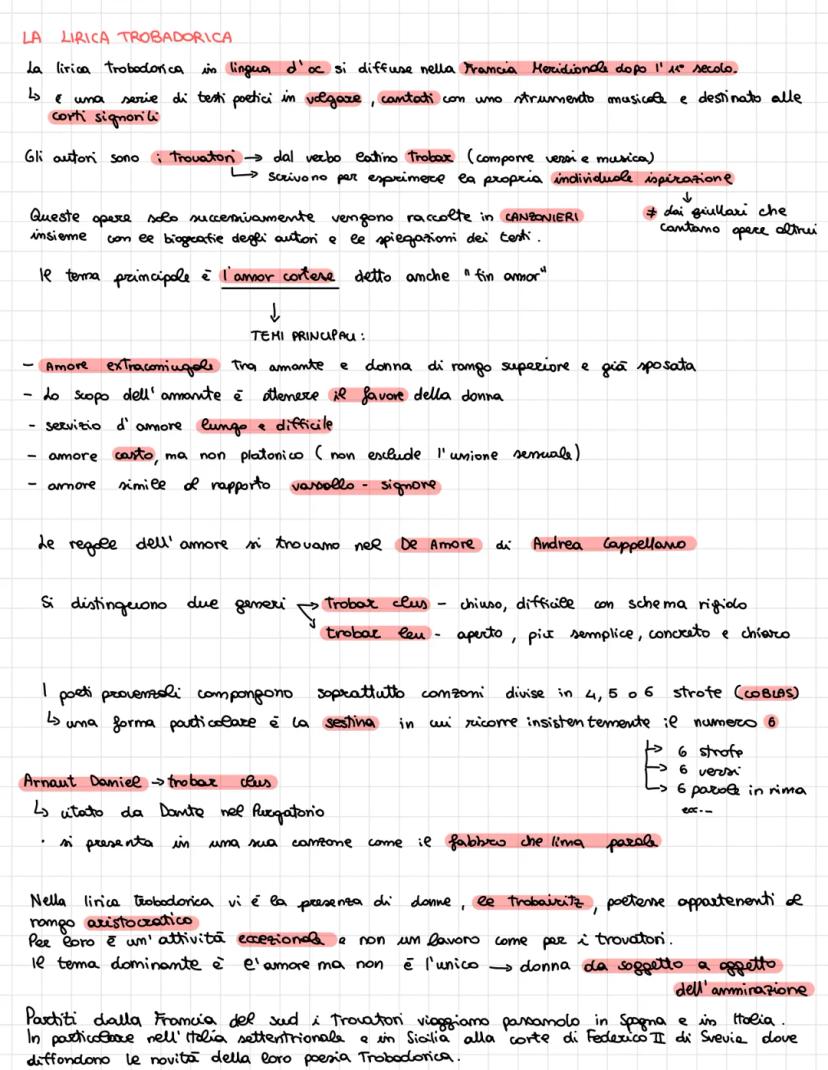 LA LIRICA TROBADORICA
La lirica trobadorica in lingua d'oc si diffuse nella Francia Meridionale dopo l'11° secolo.
↳ è una serie di testi poetici in volgare, cantati con uno strumento musicale e destinato alle
corti signorili
Gli autori sono i Trovatori → dal verbo latino Trobar (comporre versi e musica)
↳ scrivono per esprimere la propria individuale ispirazione
↓
≠ dai giullari che
cantano opere altrui
Queste opere solo successivamente vengono raccolte in CANZONIERI
insieme con le biografie degli autori e le spiegazioni dei testi.
Il tema principale è l'amor cortese detto anche "fin amor"
↓
TEMI PRINCIPALI:
- Amore extraconiugale tra amante e donna di rango superiore e già sposata
- Lo scopo dell'amante è ottenere il favore della donna
- servizio d'amore lungo e difficile
- amore casto, ma non platonico (non esclude l'unione sensuale)
- amore simile al rapporto vassallo - signore
Le regole dell'amore si trovano nel De Amore di Andrea Cappellano
Si distinguono due generi → Trobar clus - chiuso, difficile con schema rigido
↘ trobar leu - aperto, più semplice, concreto e chiaro
I poeti provenzali compongono soprattutto canzoni divise in 4, 5 o 6 strofe (COBLAS)
↳ una forma particolare è la sestina in cui ricorre insistentemente il numero 6
→ 6 strofe
→ 6 versi
→ 6 parole in rima
ecc..
Arnaut Daniel → trobar clus
↳ citato da Dante nel Purgatorio
· si presenta in una sua canzone come il fabbro che lima parole
Nella lirica trobadorica vi è la presenza di donne, le trobairitz, poetesse appartenenti al
rango aristocratico
Per loro è un'attività eccezionale e non un lavoro come per i trovatori.
Il tema dominante è l'amore ma non è l'unico → donna da soggetto a oggetto
dell'ammirazione
Partiti dalla Francia del sud i Trovatori viaggiano passando in Spagna e in Italia.
In particolare nell'Italia settentrionale e in Sicilia alla corte di Federico II di Svevia dove
diffondono le novità della loro poesia Trobadorica.